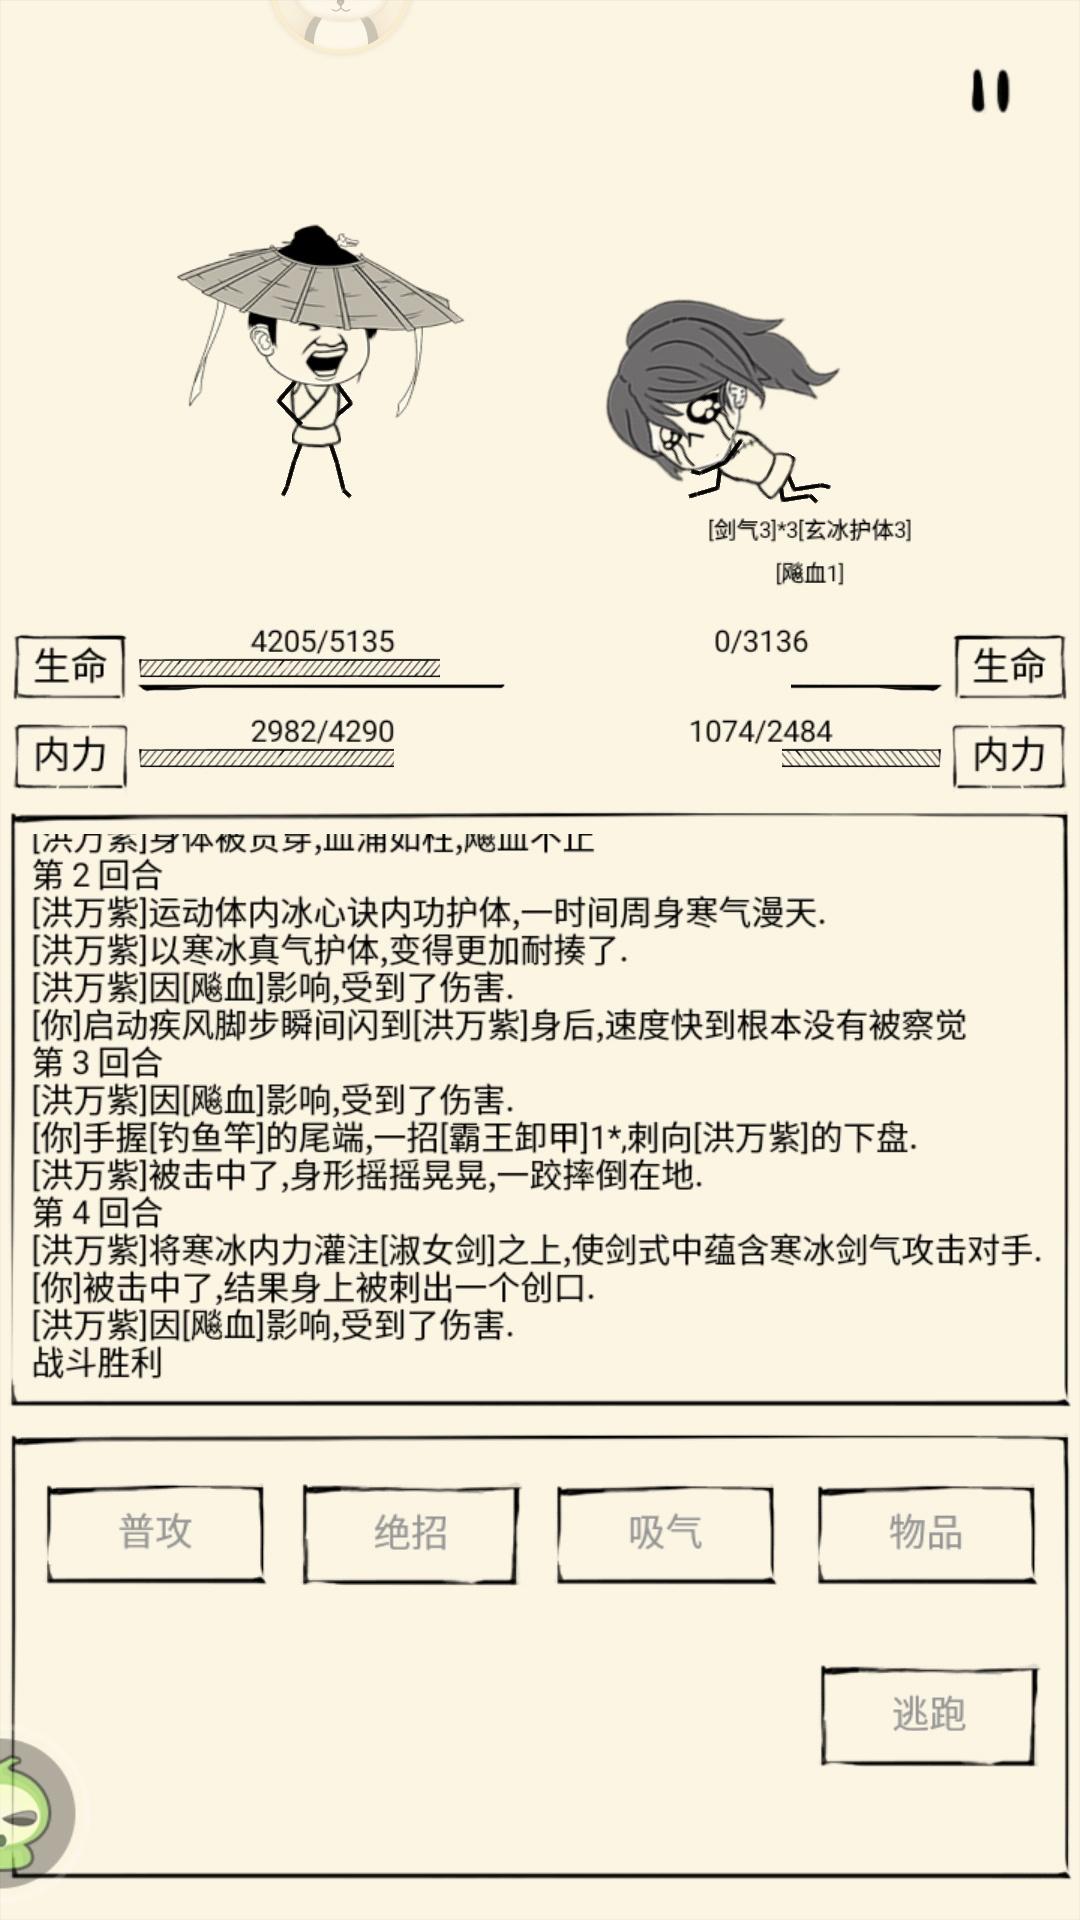 [剑气3]*3[玄冰护体3]
[飚血1]
生命
4205/5135
0/3136
生命
内力
2982/4290
1074/2484
内力
[洪万紫]身体被贯穿,血涌如柱,飚血不止
第2回合
[洪万紫]运动体内冰心诀内功护体,一时间周身寒气漫天.
[洪万紫]以寒冰真气护体,变得更加耐揍了.
[洪万紫]因[飚血]影响,受到了伤害.
[你]启动疾风脚步瞬间闪到[洪万紫]身后,速度快到根本没有被察觉
第3回合
[洪万紫]因[飚血]影响,受到了伤害.
[你]手握[钓鱼竿]的尾端,一招[霸王卸甲]1*,刺向[洪万紫]的下盘.
[洪万紫]被击中了,身形摇摇晃晃,一跤摔倒在地.
第4回合
[洪万紫]将寒冰内力灌注[淑女剑]之上,使剑式中蕴含寒冰剑气攻击对手.
[你]被击中了,结果身上被刺出一个创口.
[洪万紫]因[飚血]影响,受到了伤害.
战斗胜利
普攻
绝招
吸气
物品
逃跑